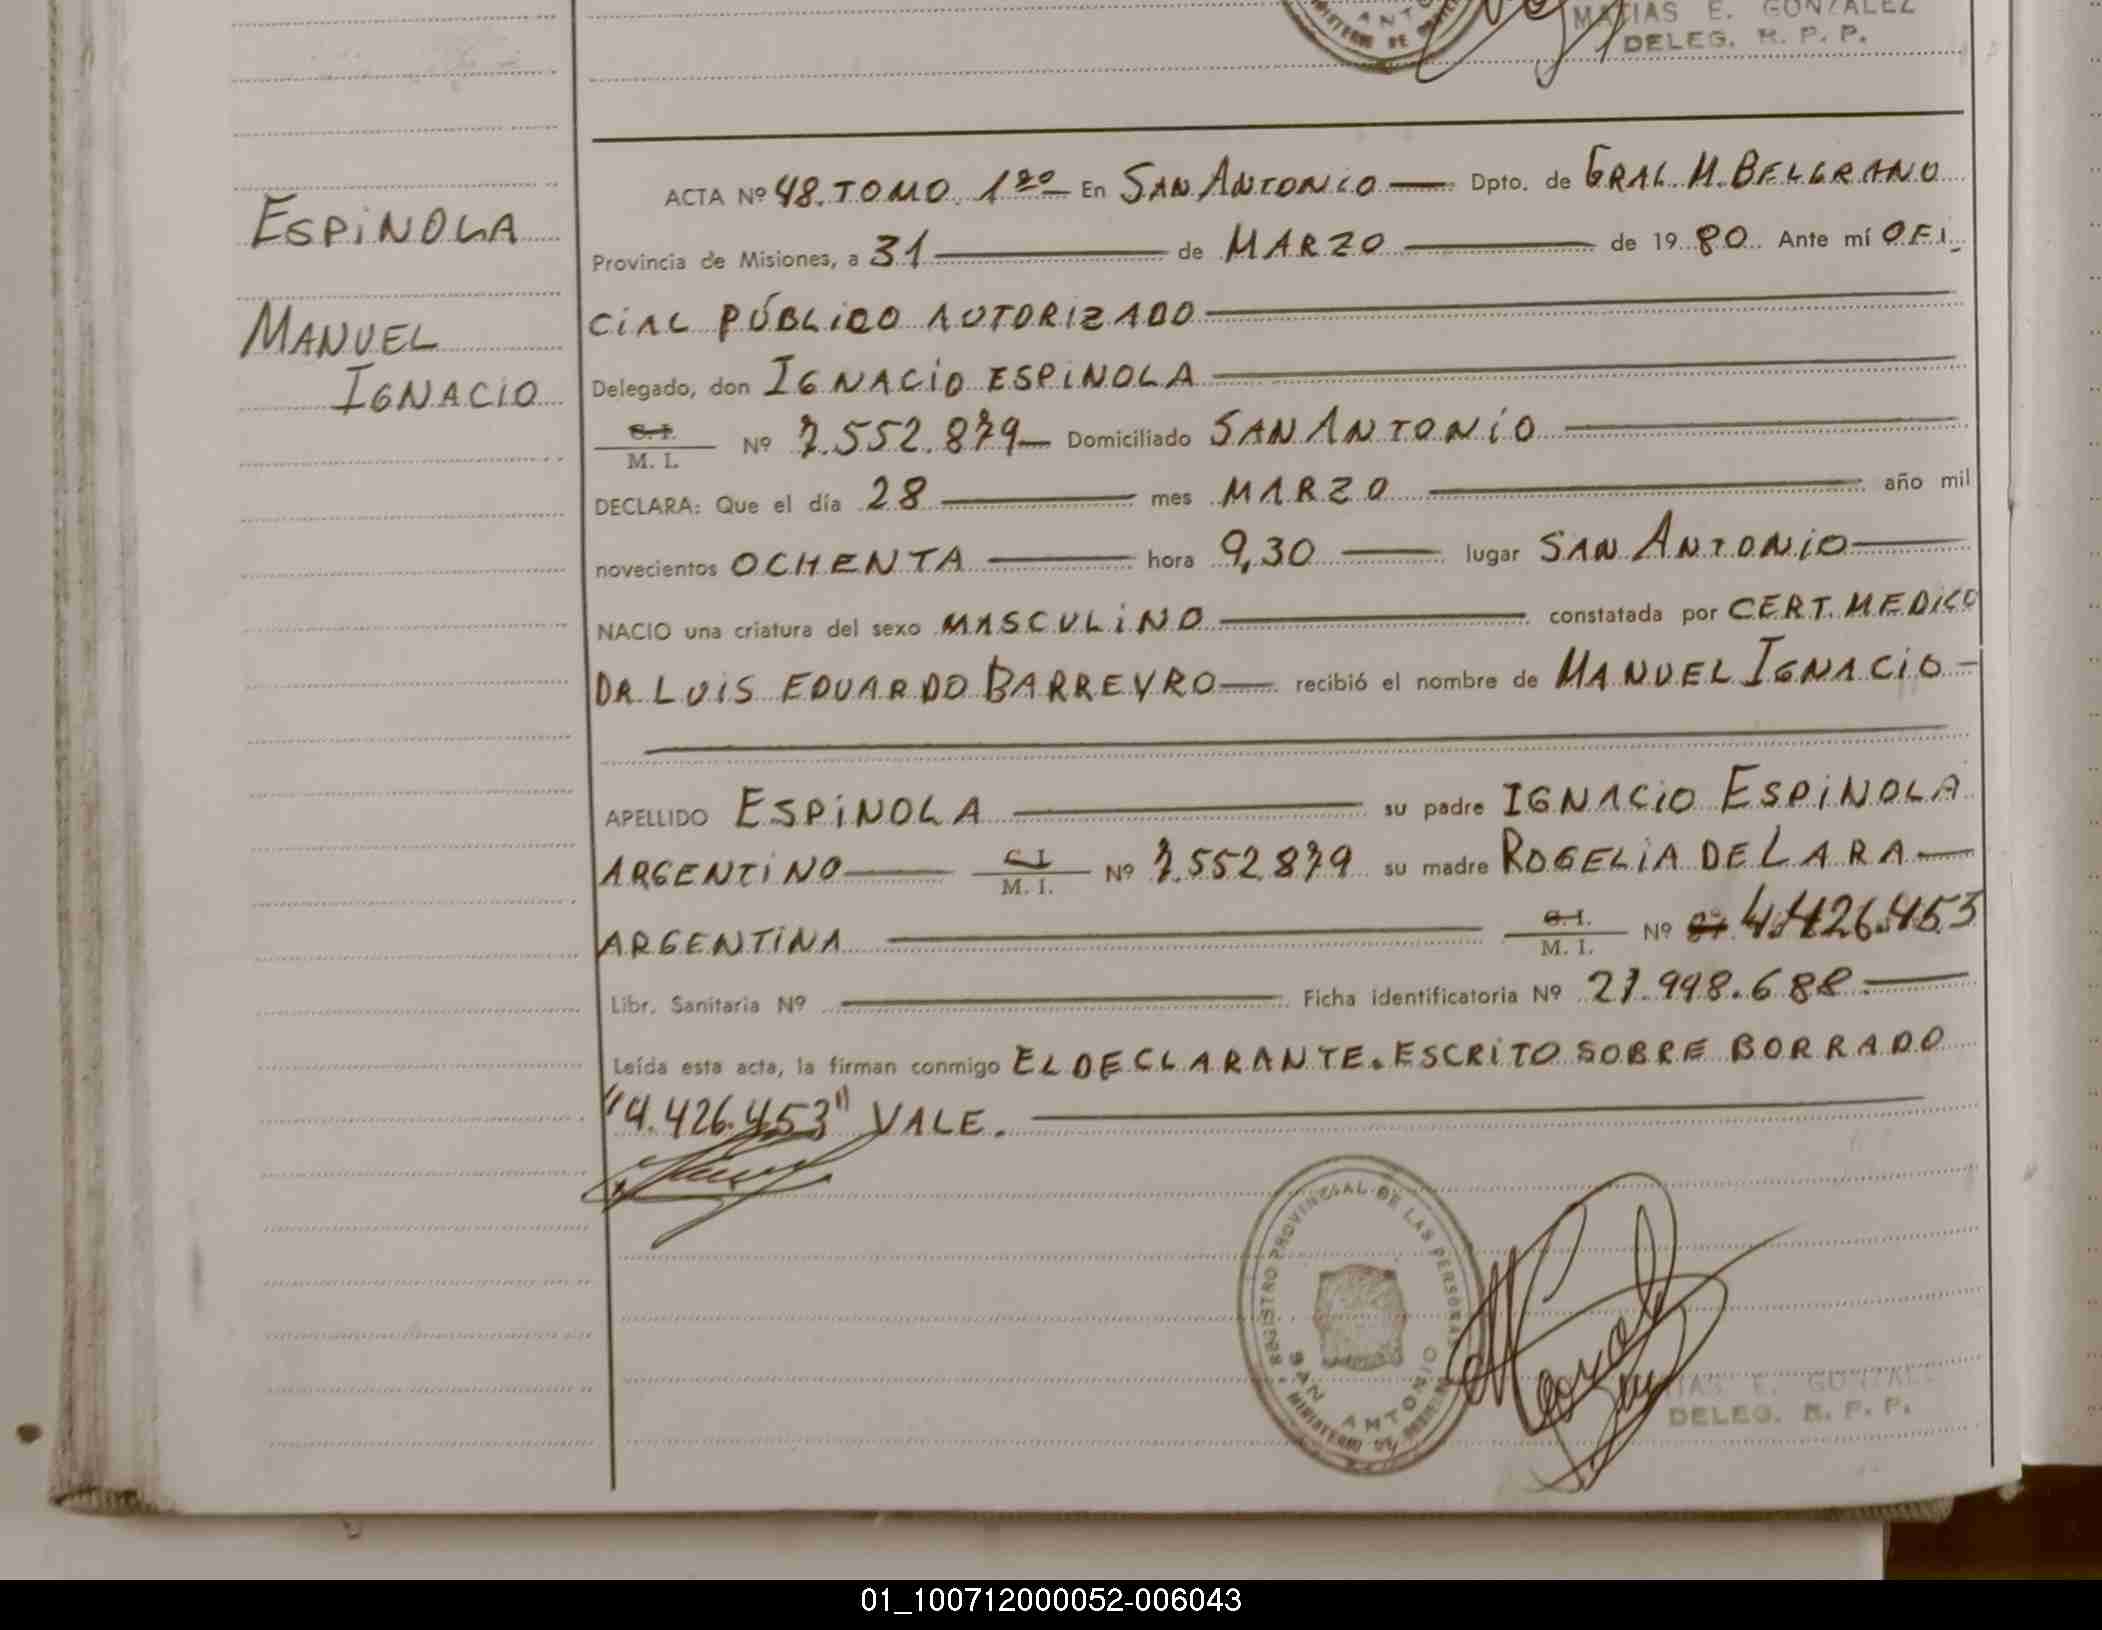 MATIAS E. GONZALEZ
DELEG. R. P. P.
ESPINOLA
MANUEL
IGNACIO
ACTA Nº 48. TOMO 1ro En SAN ANTONIO Dpto. de GRAL M. BELGRANO
Provincia de Misiones, a 31 de MARZO de 1980. Ante mí OFI_
CIAL PÚBLICO AUTORIZADO
Delegado, don IGNACIO ESPINOLA
C. I. / M. I. Nº 7.552.879 Domiciliado SAN ANTONIO
DECLARA: Que el día 28 mes MARZO año mil
novecientos OCHENTA hora 9,30 lugar SAN ANTONIO
NACIO una criatura del sexo MASCULINO constatada por CERT. MEDICO
DR LUIS EDUARDO BARREYRO recibió el nombre de MANUEL IGNACIO
APELLIDO ESPINOLA su padre IGNACIO ESPINOLA
ARGENTINO C. I. / M. I. Nº 7.552.879 su madre ROGELIA DE LARA
ARGENTINA C. I. / M. I. Nº 4.426.453
Libr. Sanitaria Nº Ficha identificatoria Nº 27.998.688.
Leída esta acta, la firman conmigo EL DECLARANTE. ESCRITO SOBRE BORRADO
"4.426.453" VALE.
REGISTRO PROVINCIAL DE LAS PERSONAS
SAN ANTONIO
MINISTERIO DE GOBIERNO
MATIAS E. GONZALEZ
DELEG. R. P. P.
01_100712000052-006043